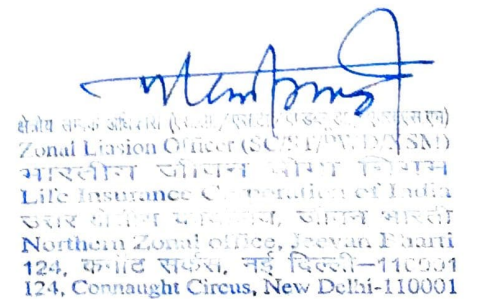 Zonal Liasion Officer (SC/ST/PWD/XSM)
भारतीय जीवन बीमा निगम
Life Insurance Corporation of India
उत्तर क्षेत्रीय कार्यालय, जीवन भारती
Northern Zonal office, Jeevan Bharti
124, कनाट सर्कस, नई दिल्ली-110001
124, Connaught Circus, New Delhi-110001